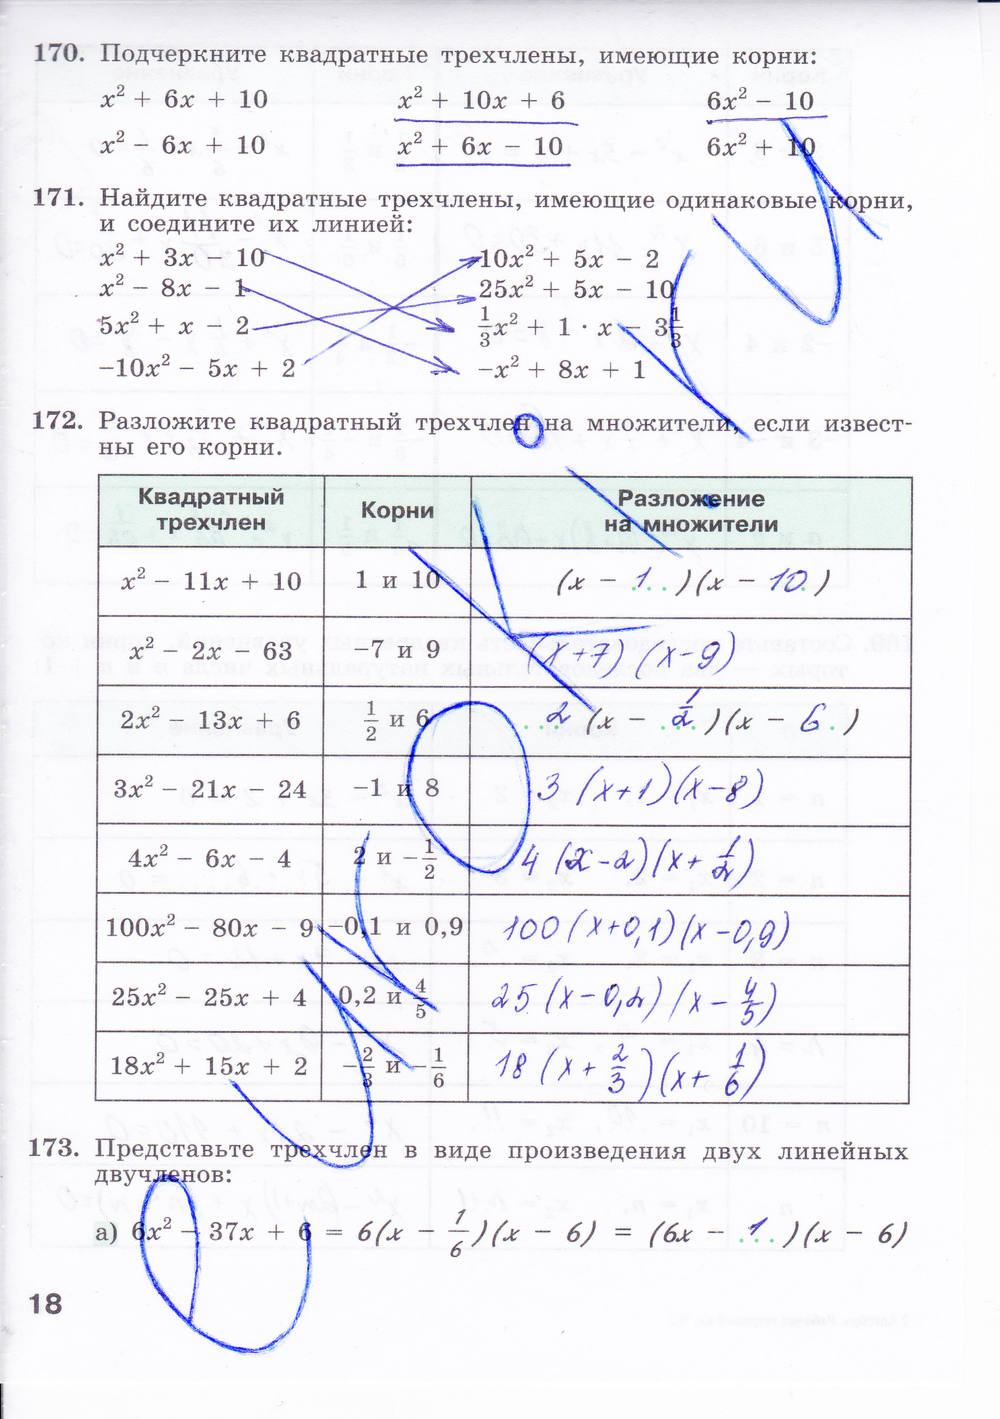 170. Подчеркните квадратные трехчлены, имеющие корни:
x² + 6x + 10 x² + 10x + 6 6x² − 10
x² − 6x + 10 x² + 6x − 10 6x² + 10
171. Найдите квадратные трехчлены, имеющие одинаковые корни,
и соедините их линией:
x² + 3x − 10 10x² + 5x − 2
x² − 8x − 1 25x² + 5x − 10
5x² + x − 2 1/3x² + 1 · x − 3 1/3
−10x² − 5x + 2 −x² + 8x + 1
172. Разложите квадратный трехчлен на множители, если извест-
ны его корни.
Квадратный трехчлен Корни Разложение на множители
x² − 11x + 10 1 и 10 (x − 1)(x − 10)
x² − 2x − 63 −7 и 9 (x+7)(x−9)
2x² − 13x + 6 1/2 и 6 2(x − 1/2)(x − 6)
3x² − 21x − 24 −1 и 8 3(x+1)(x−8)
4x² − 6x − 4 2 и −1/2 4(x−2)(x+1/2)
100x² − 80x − 9 −0,1 и 0,9 100(x+0,1)(x−0,9)
25x² − 25x + 4 0,2 и 4/5 25(x−0,2)(x−4/5)
18x² + 15x + 2 −2/3 и −1/6 18(x+2/3)(x+1/6)
173. Представьте трехчлен в виде произведения двух линейных
двучленов:
а) 6x² − 37x + 6 = 6(x − 1/6)(x − 6) = (6x − 1)(x − 6)
18